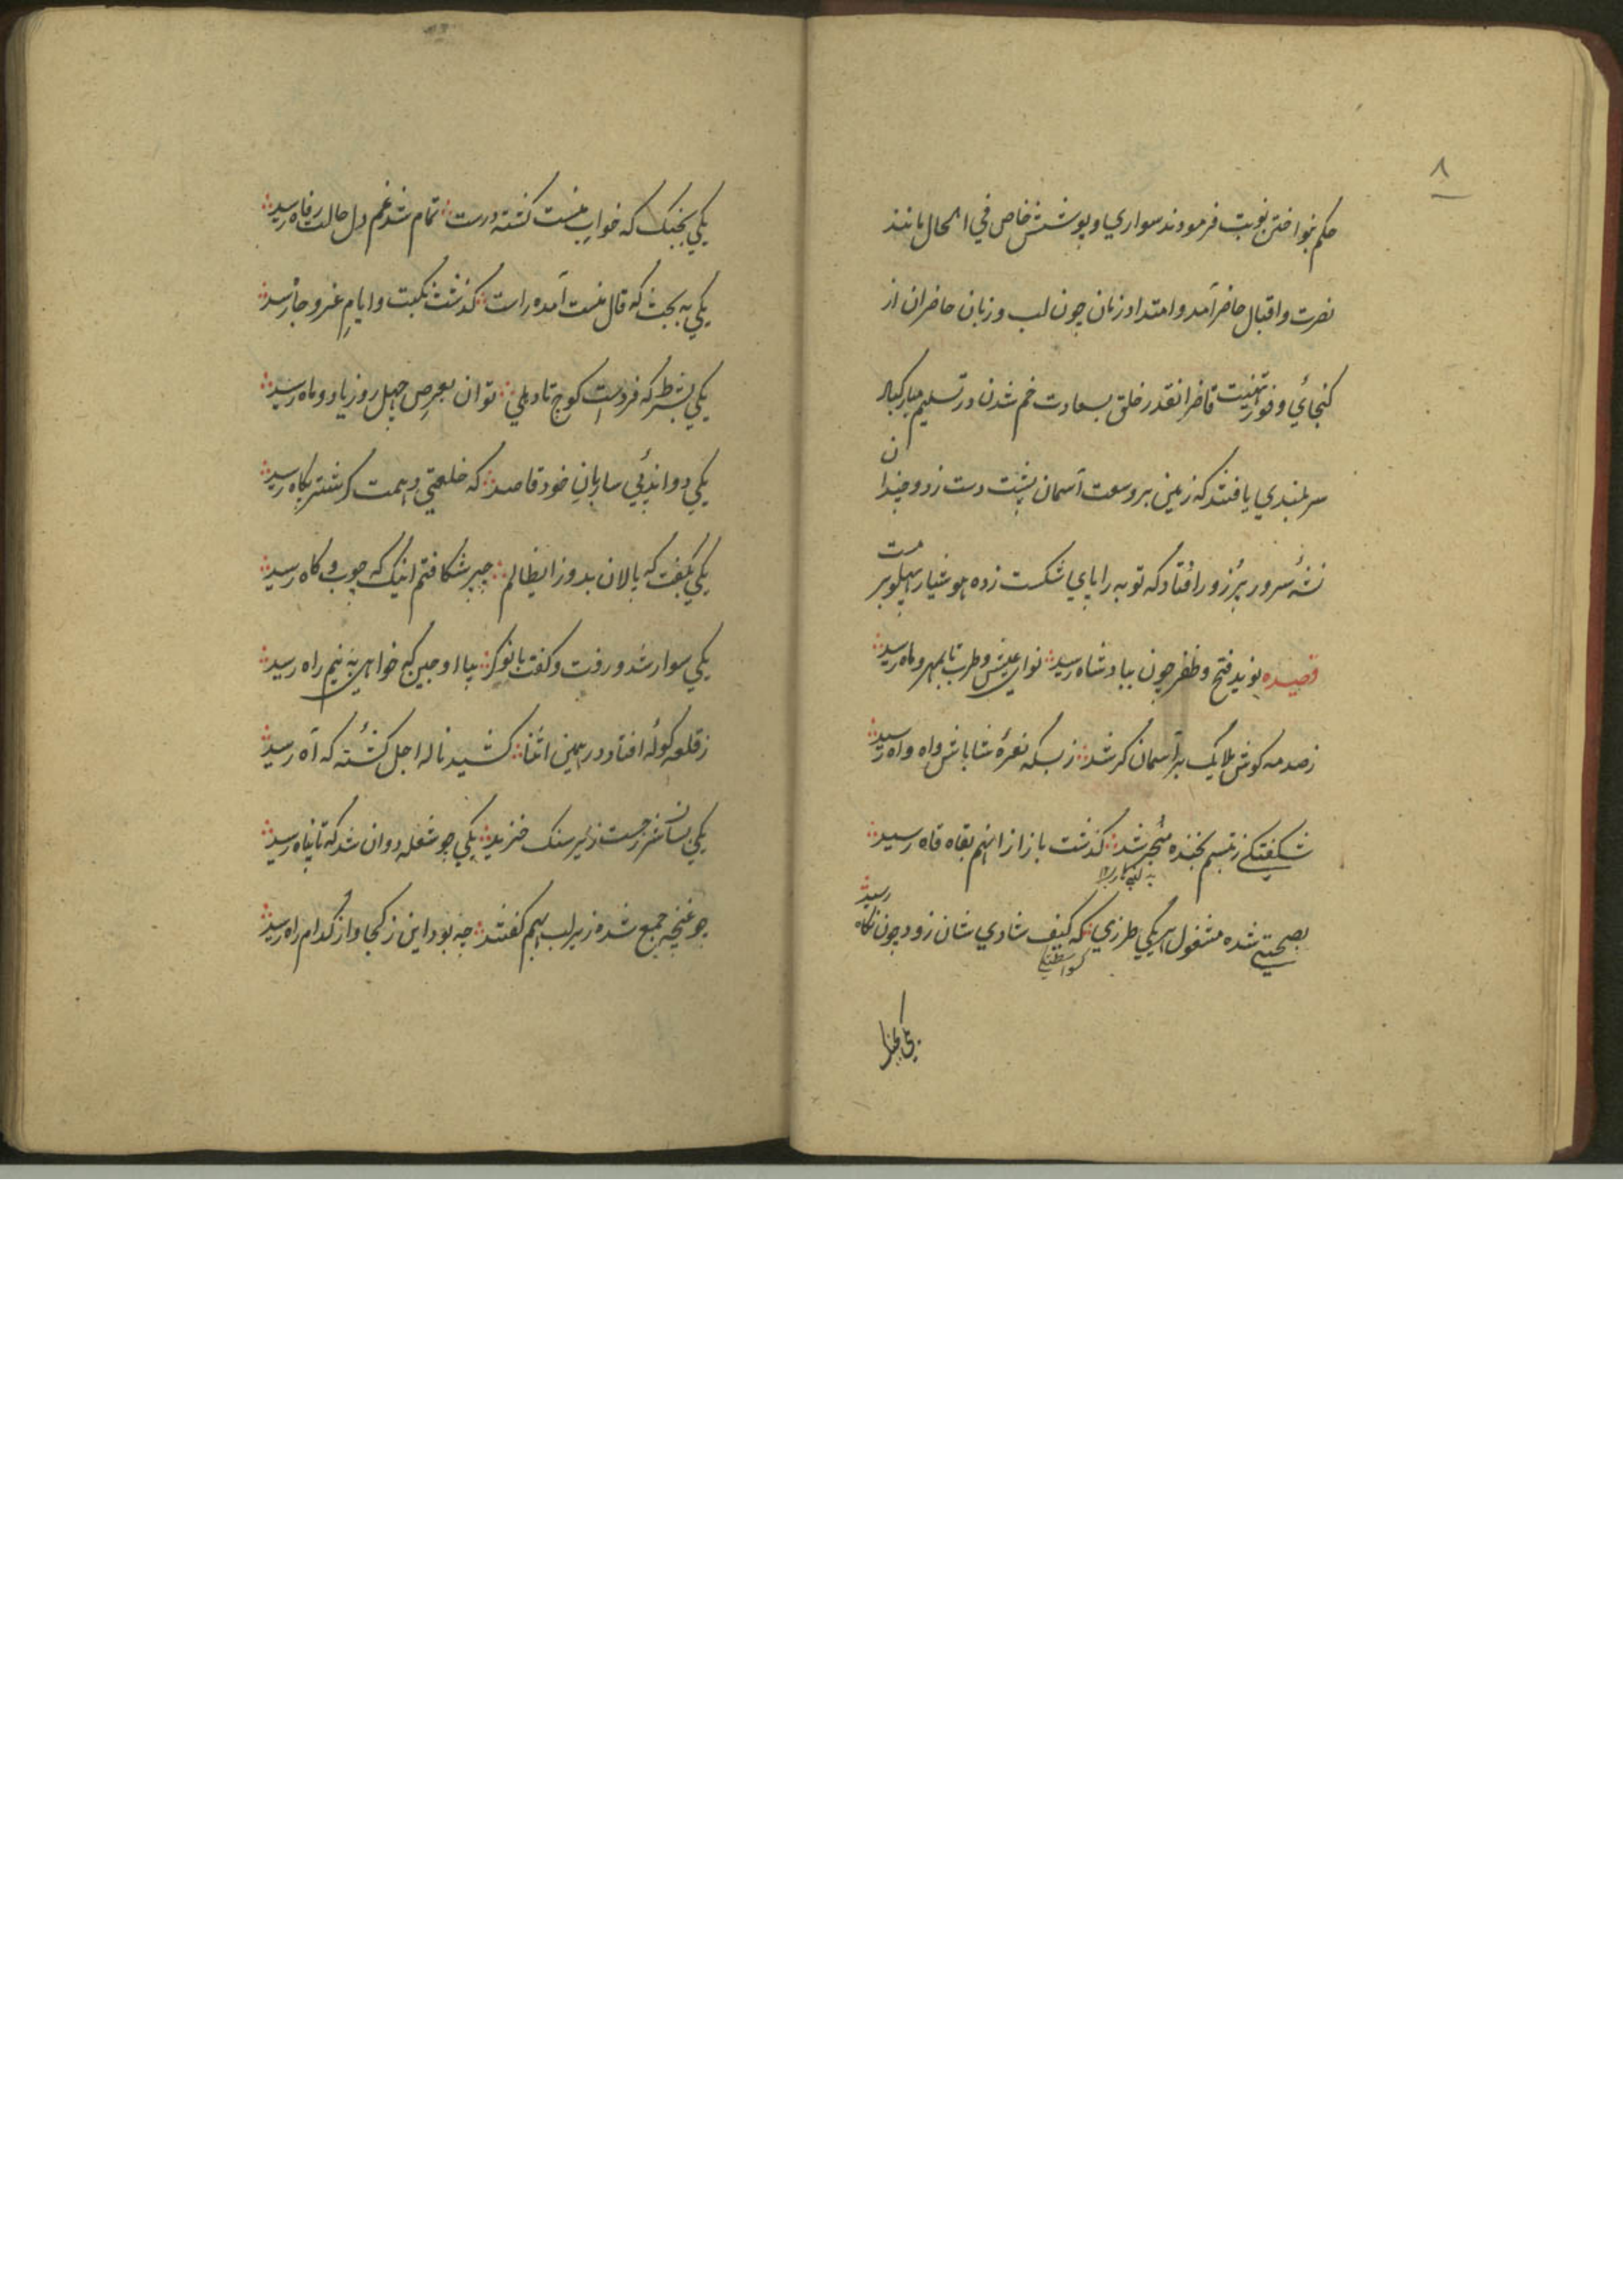 ۸
حکم بنواختن نوبت فرمودند سواري و پوشش خاص في الحال مانند
نصرت و اقبال حاضر آمد و امتداد زمان چون لب و زبان حاضران از
کنجائي وفور تهنیت قاصر انقدر خلق بسعادت خم شدن در تسلیم مبارکباد
سربلندي یافتند که زمین بر وسعت آسمان پشت دست زد و چندان
نشهٔ سرور پر زور افتاد که توبه را پاي شکست زده هوشیار پهلو بر مست
قصیده نوید فتح و ظفر چون ببادشاه رسید ؛ نواي عیش و طرب تا بمهر و ماه رسید
ز صدمه کوش ملایک بر آسمان کر شد ؛ ز بسکه نعرهٔ شاباش و واه واه رسید
شکفتکي ز تبسم بخنده منجر شد ؛ کذشت باز از انهم بقاه قاه رسید
بصحبتي شده مشغول هر یکي طرزي ؛ که کیف شادي شان زود چون نکاه رسید
یکي بجنک که خواب منست کشته درست ؛ تمام شد غم دل حالت رفاه رسید
یکي به بحث که فال منست آمده راست ؛ کذشت نکبت و ایام عز و جاه رسید
یکي بشرط که فرداست کوچ تا دهلي ؛ توان بعرض چهل روز یا دو ماه رسید
یکي دواند پي ساربان خود قاصد ؛ که خلعتي دهمت کر شتر پکاه رسید
یکي بکفت که پالان بدوز ایظالم ؛ چپر شکافتم اینک که چوب و کاه رسید
یکي سوار شد و رفت و کفت با نوکر ؛ بیا اوجین که خواهي به نیم راه رسید
ز قلعه کولهٔ افتاد در همین اثنا ؛ کشید ناله اجل کشتهٔ که آه رسید
یکي بسان شرر جست زیر سنک خزید ؛ یکي چو شعله دوان شد که تا پناه رسید
چو غنچه جمع شده زیر لب بهم کفتند ؛ چه بود این ز کجا و از کدام راه رسید